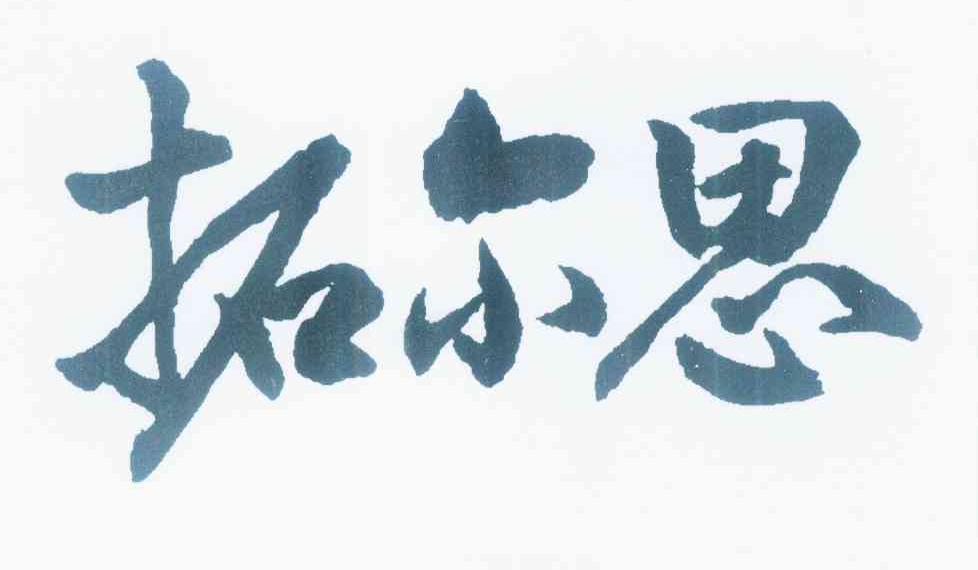 拓尔思